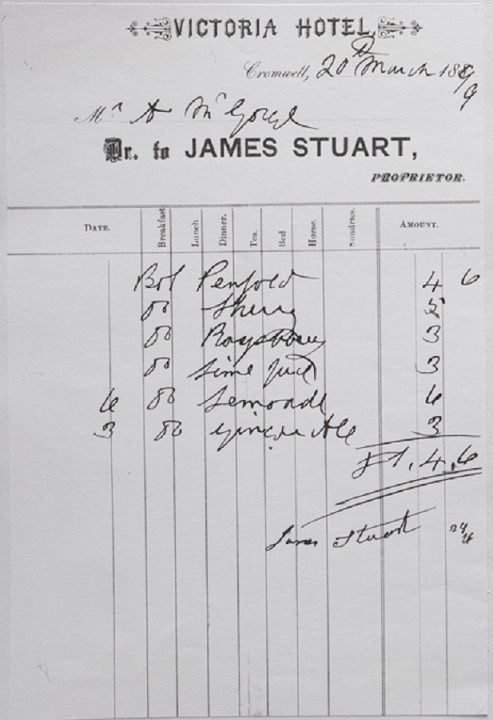 VICTORIA HOTEL,
Cromwell, 20th March 1889
Mr A McGorge
Dr. to JAMES STUART,
PROPRIETOR.
DATE. Breakfast Lunch Dinner. Tea. Bed Horse. Sundries. AMOUNT.
Bot Penfold 4 6
do Sherry 5
do Raspberry 3
do Lime Juice 3
6 do Lemonade 6
3 do Ginger Ale 3
£1.4.6
James Stuart 24/6